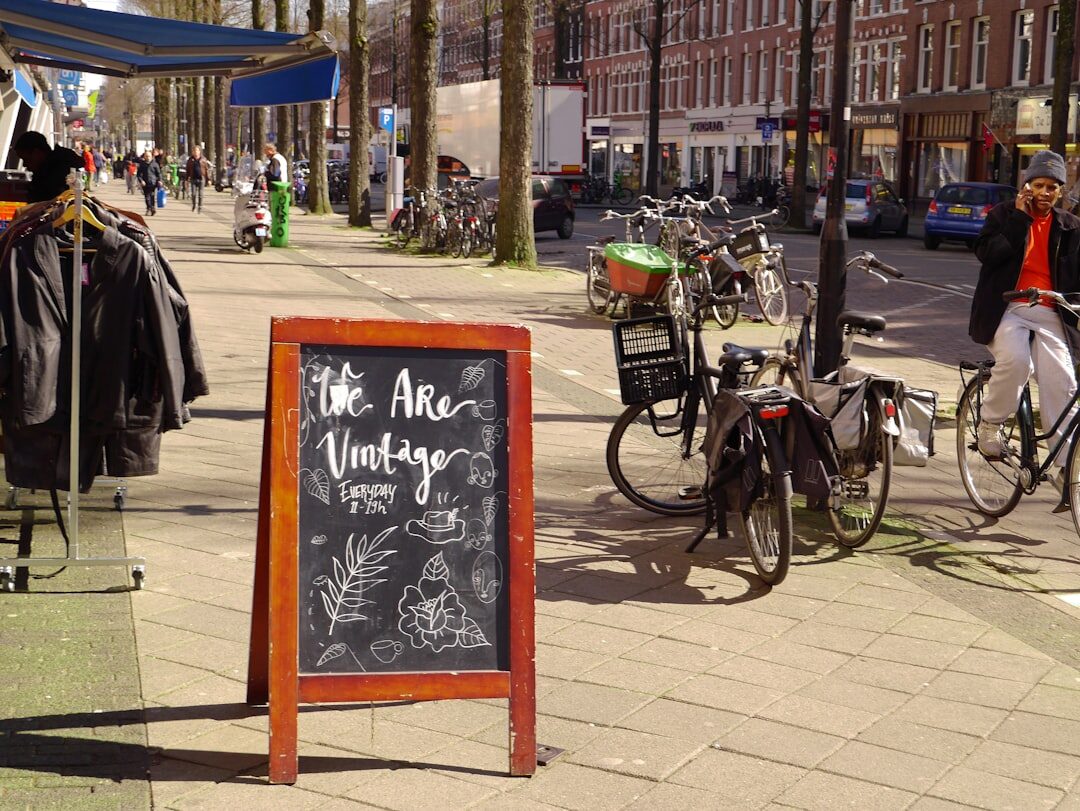 We Are
Vintage
Everyday
11-19h
P